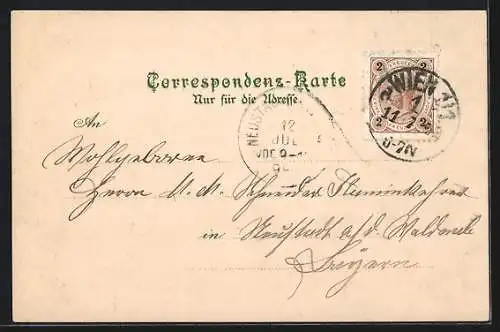 Correspondenz-Karte
Nur für die Adresse.
2 2
WIEN 1/1
11 7
2 2
NEUST
12
JUL
An
Wohlgeboren
Herrn M. M. Schneider
in Neustadt a/d. Waldnaab
Bayern